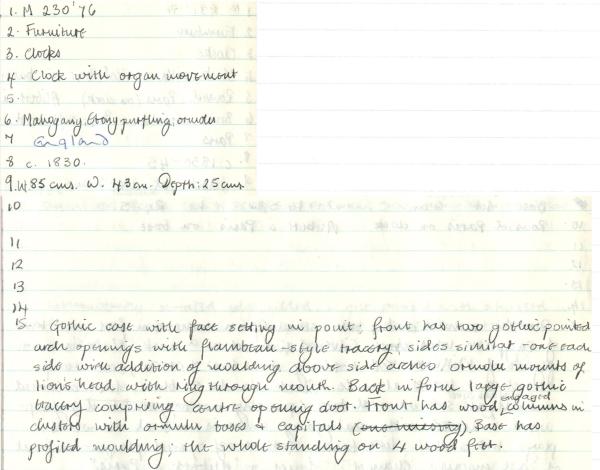 1. M 230'76
2. Furniture
3. Clocks
4 Clock with organ movement
5.
6. Mahogany, Ebony purfling, ormolu
7 England
8 c. 1830.
9. H 85 cms. W. 43 cm. Depth: 25 cms
10
11
12
13
14
15 Gothic case with face setting in point; front has two gothic pointed
arch openings with flambeau-style tracery; sides similar - one each
side with addition of moulding above side arches, ormolu mounts of
lions head with ring through mouth. Back in form large gothic
tracery comprising centre opening door. Front has wood, engaged columns in
clusters with ormulu bases & capitals (one missing). Base has
profiled moulding; the whole standing on 4 wood feet.